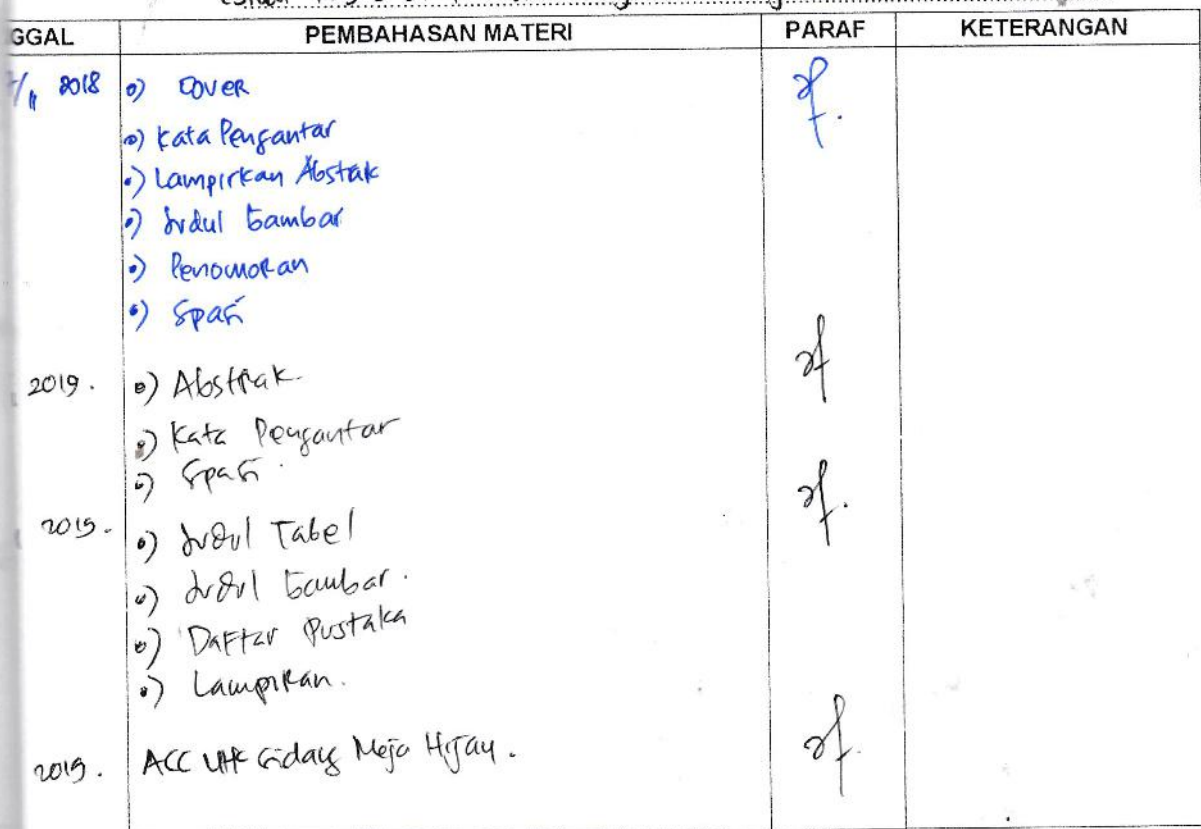 GGAL PEMBAHASAN MATERI PARAF KETERANGAN
2018 Cover
Kata Pengantar
Lampirkan Abstak
Judul Gambar
Penomoran
Spasi
2019. Abstrak
Kata Pengantar
Spasi.
2019. Judul Tabel
Judul Gambar.
Daftar Pustaka
Lampiran.
2019. ACC utk sidang Meja Hijau.